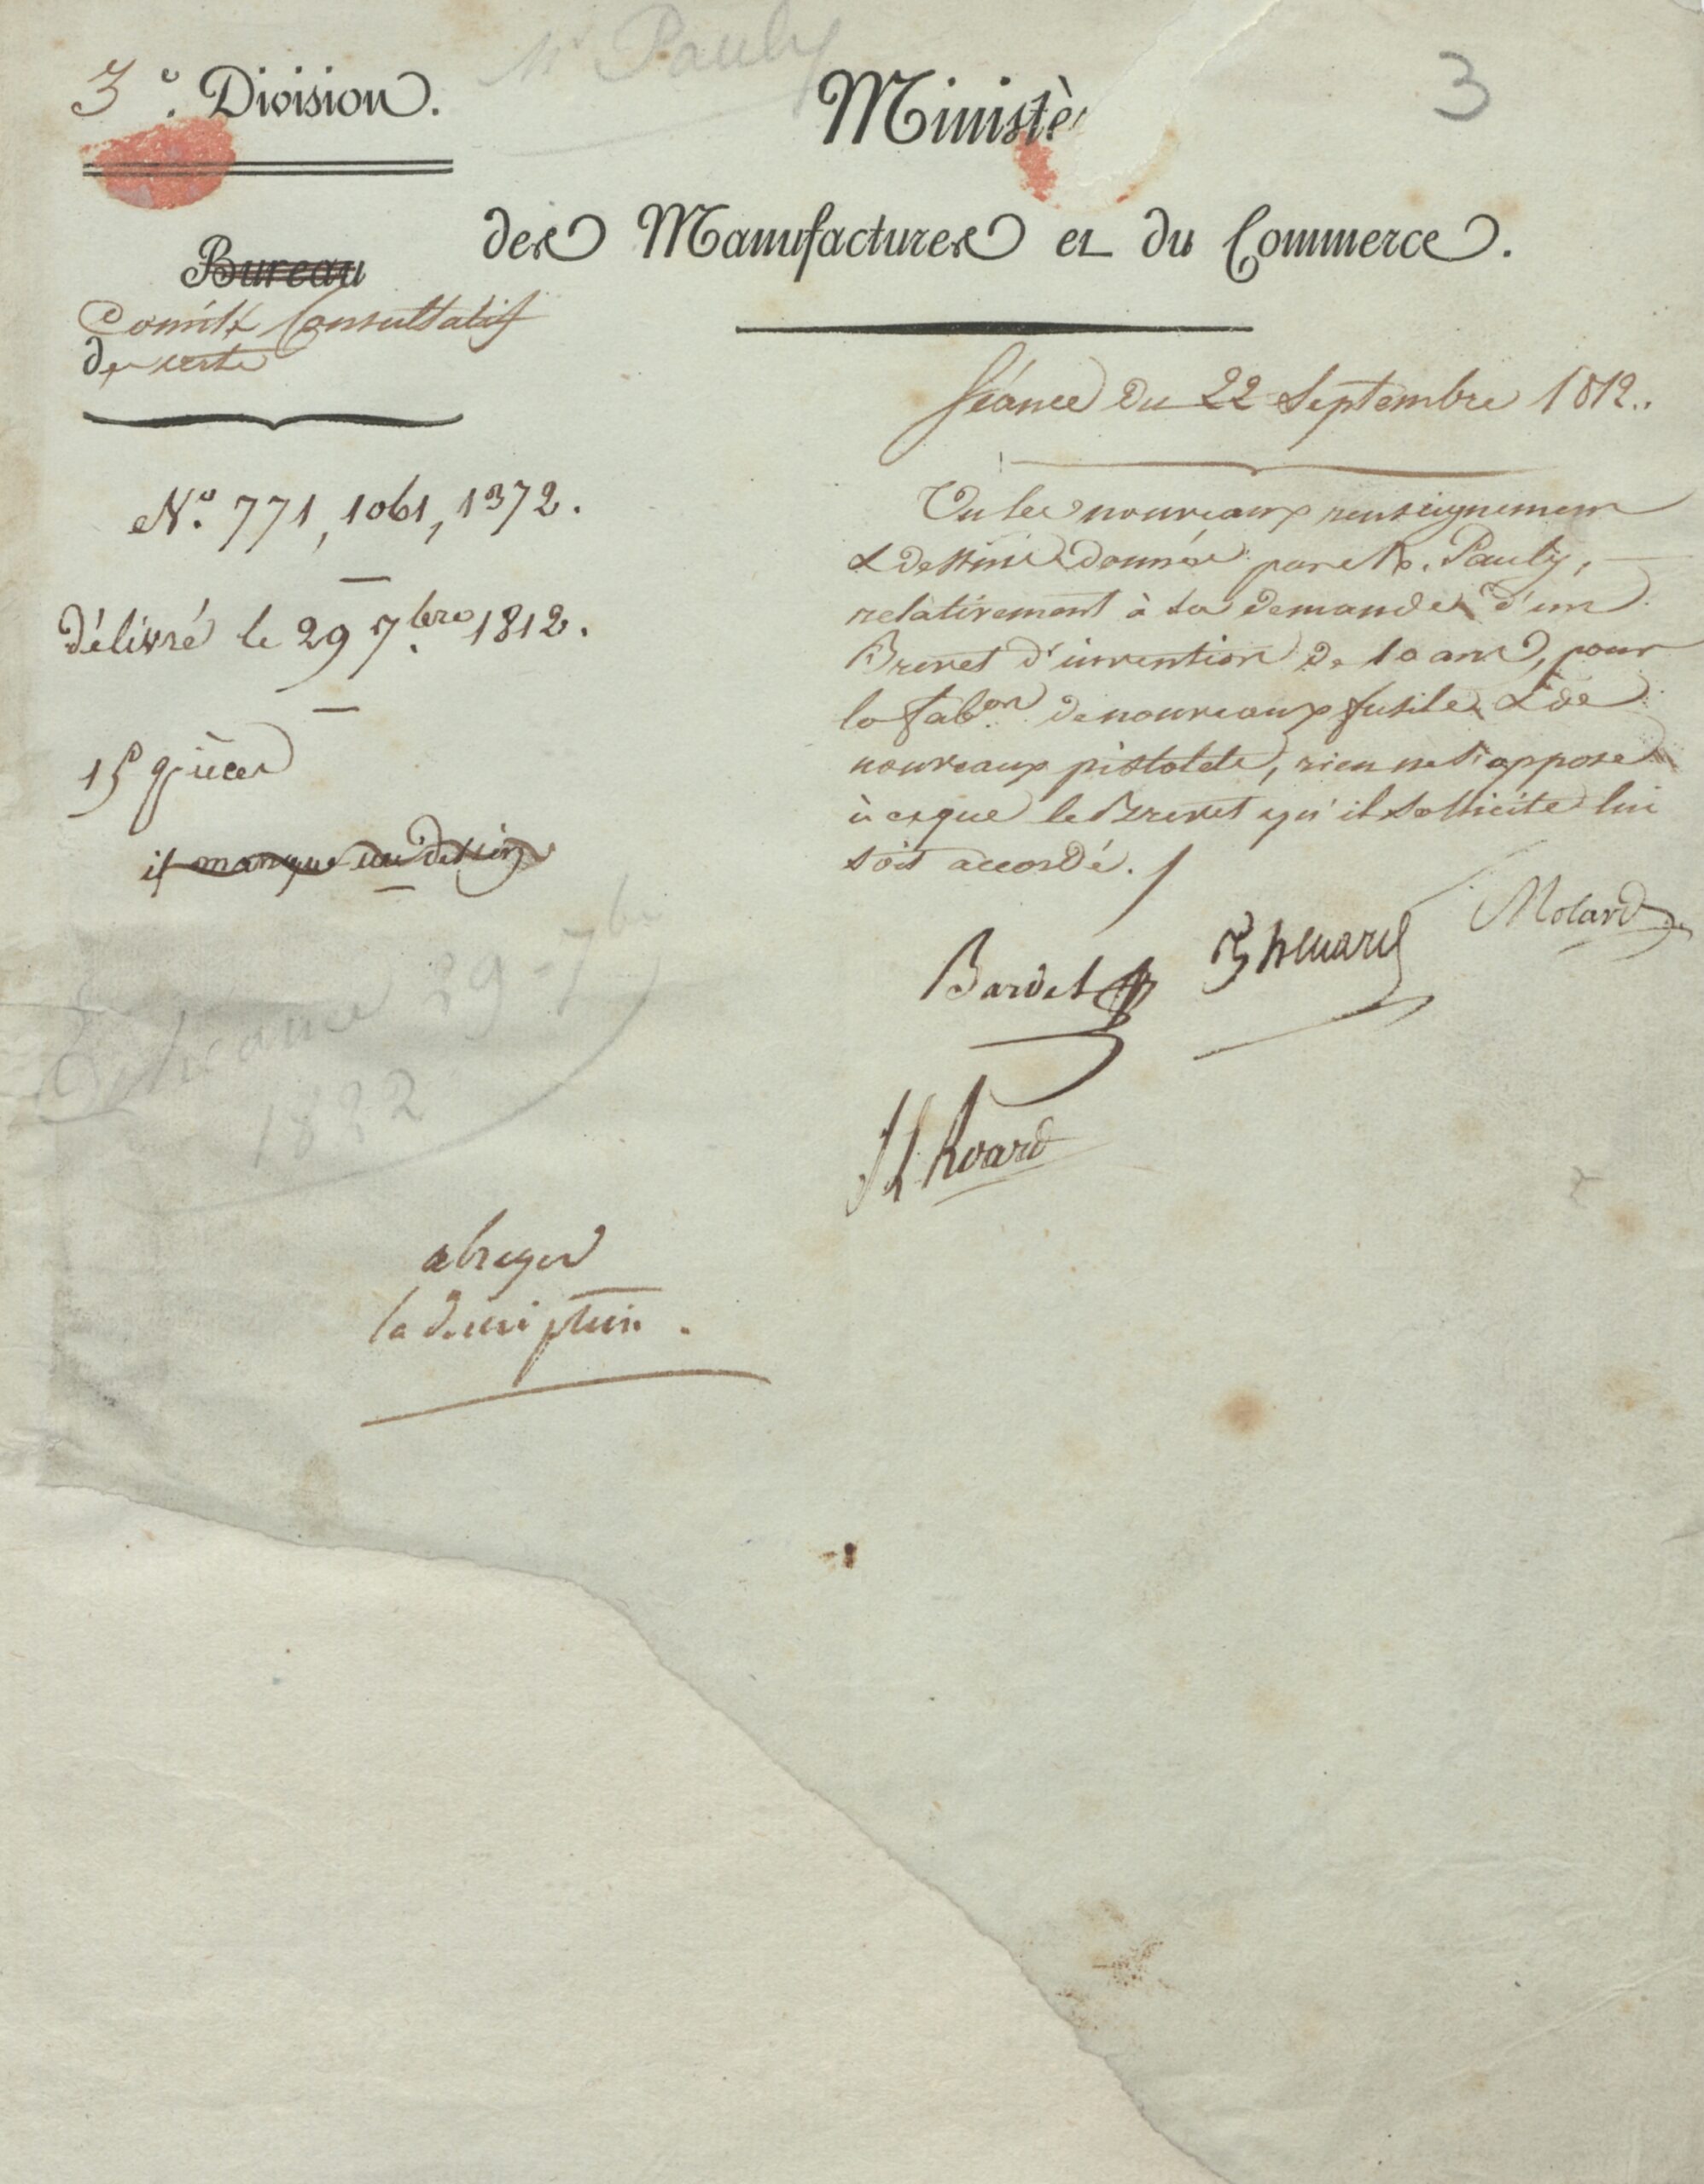 Mr Pauly
3
3e. Division.
Ministè
des Manufactures et du Commerce.
Bureau
Comité Consultatif
des arts
Séance du 22 Septembre 1812..
No. 771, 1061, 1372.
délivré le 29 7.bre 1812.
15 pièces
il manque un dessin
Vu les nouveaux renseignemens
& dessins donnés par Mr. Pauly,
relativement à sa demande d'un
Brevet d'invention de 10 ans, pour
la fabon de nouveaux fusils & de
nouveaux pistolets, rien ne s'oppose
à ce que le Brevet qu'il sollicite lui
soit accordé. /
Bardel
Thenard
Molard
Roard
Echéance 29 7bre
1822
abreger
la description.